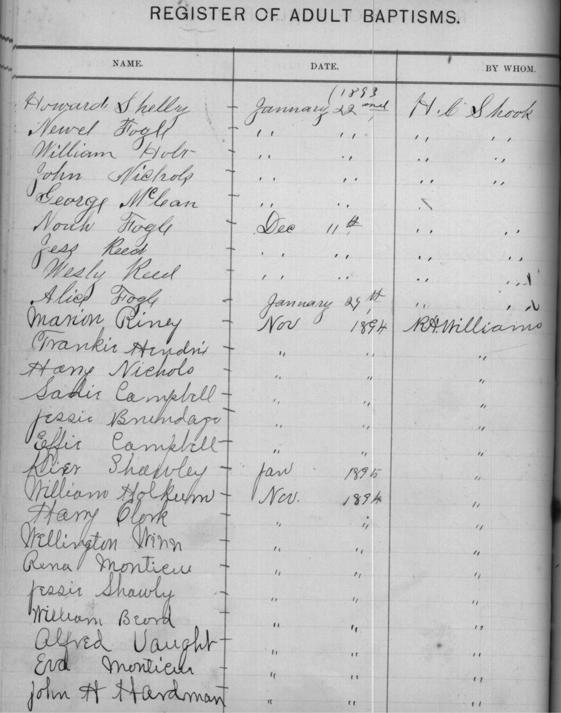 REGISTER OF ADULT BAPTISMS.
NAME. DATE. BY WHOM.
(1893
Howard Shelby January 22nd H. C Shook
Newel Fogle " " " "
William Holt " " " "
John Nichols " " " "
George McLean " "
Noah Fogle Dec 11th " "
Jess Reed " " "
Wesly Reed " " "
Alice Fogle January 29th "
Marion Riney Nov 1894 R.H. Williams
Frankie Hindris " " "
Harry Nichols " " "
Sadie Campbell " " "
Jessie Brundage " " "
Effie Campbell " " "
Shawley Jan 1895 "
William Holkum Nov. 1894 "
Harry Clark " " "
Wellington Winn " " "
Rena Monticue " " "
Jessie Shawly " " "
William Beord " " "
Alfred Vaught " " "
Eva Monticue " " "
John H Hardman " " "